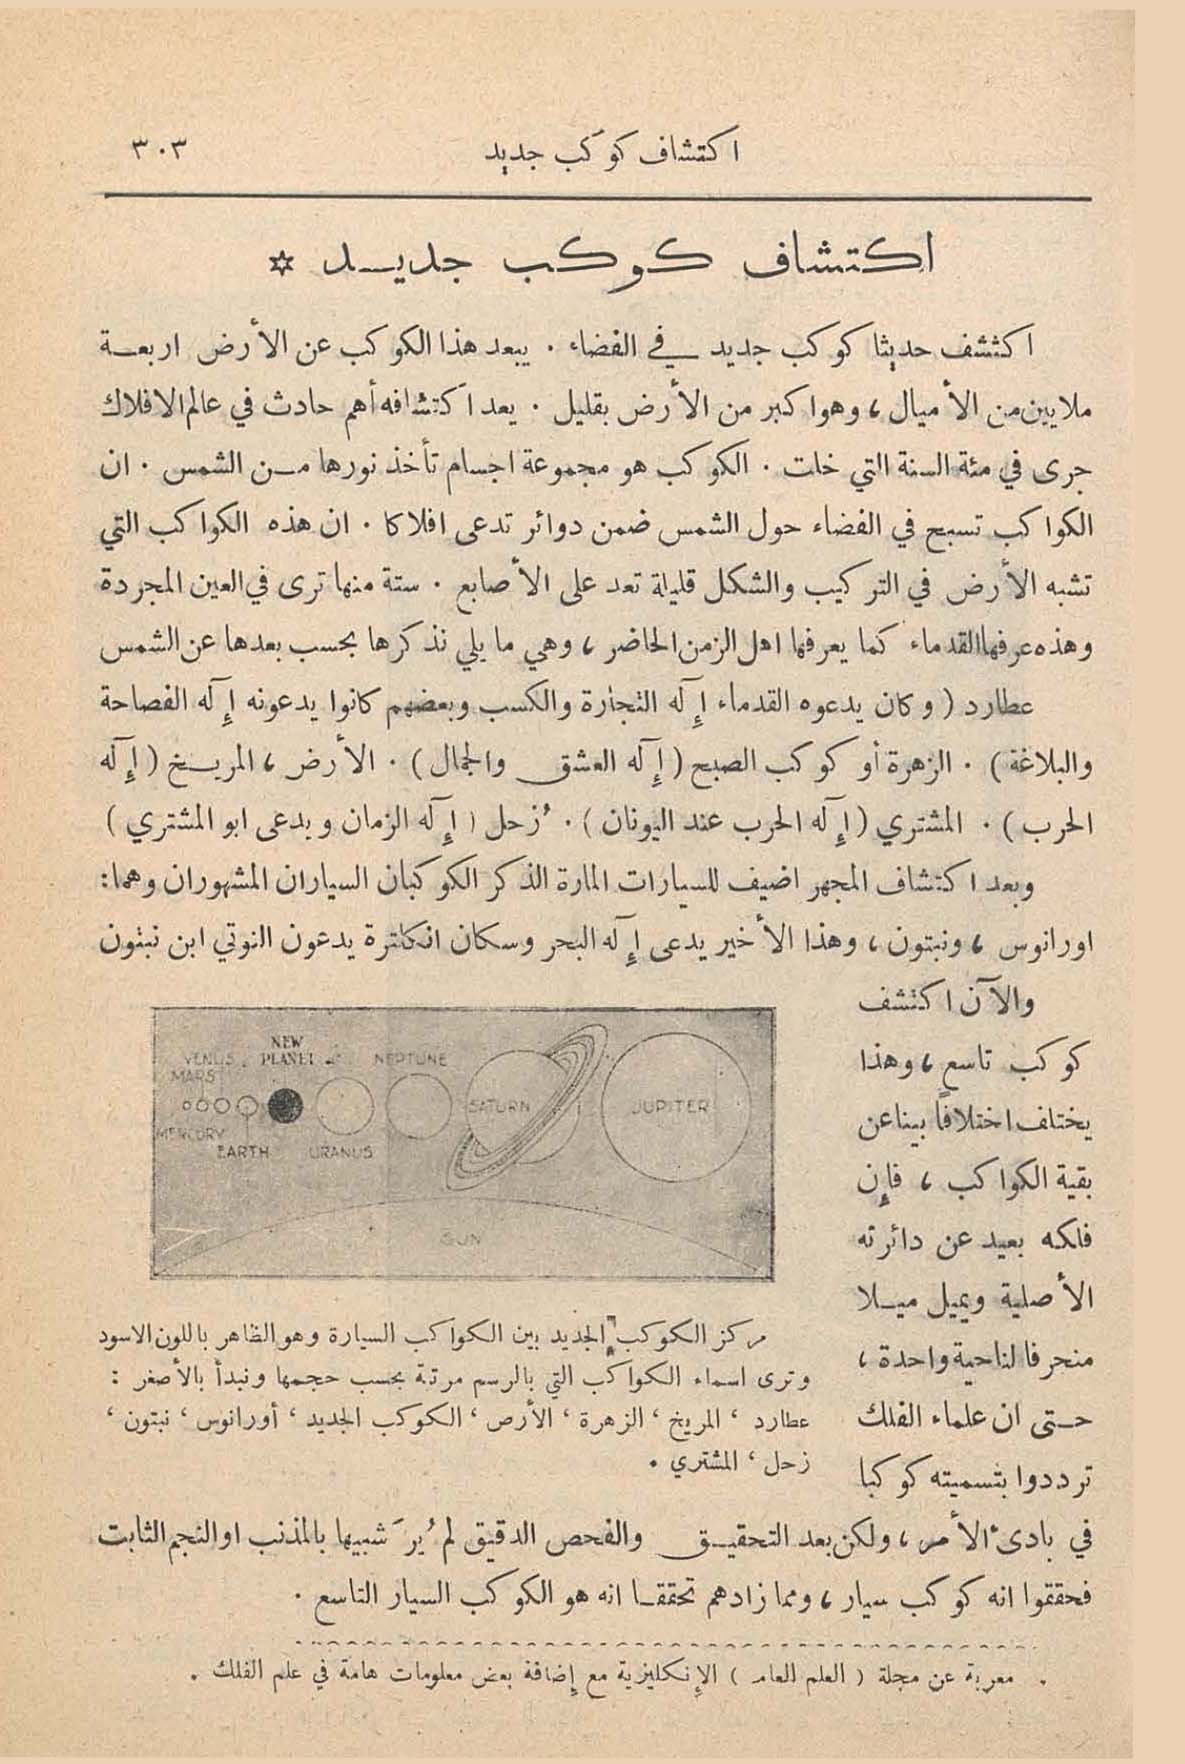 اكتشاف كوكب جديد
٣٠٣
اكتشاف كوكب جديد ✡
اكتشف حديثا كوكب جديد في الفضاء . يبعد هذا الكوكب عن الأرض اربعة
ملايين من الأميال ، وهو اكبر من الأرض بقليل . يعد اكتشافه أهم حادث في عالم الافلاك
جرى في مئة السنة التي خلت . الكوكب هو مجموعة اجسام تأخذ نورها من الشمس . ان
الكواكب تسبح في الفضاء حول الشمس ضمن دوائر تدعى افلاكا . ان هذه الكواكب التي
تشبه الأرض في التركيب والشكل قليلة تعد على الأصابع . ستة منها ترى في العين المجردة
وهذه عرفها القدماء كما يعرفها اهل الزمن الحاضر ، وهي ما يلي نذكرها بحسب بعدها عن الشمس
عطارد ( وكان يدعوه القدماء إله التجارة والكسب وبعضهم كانوا يدعونه إله الفصاحة
والبلاغة ) . الزهرة أو كوكب الصبح ( إله العشق والجمال ) . الأرض ، المريخ ( إله
الحرب ) . المشتري ( إله الحرب عند اليونان ) . زُحل ( إله الزمان ويدعى ابو المشتري )
وبعد اكتشاف المجهر اضيف للسيارات المارة الذكر الكوكبان السياران المشهوران وهما :
اورانوس ، ونبتون ، وهذا الأخير يدعى إله البحر وسكان انكلترة يدعون النوتي ابن نبتون
والآن اكتشف
كوكب تاسع ، وهذا
يختلف اختلافاً بينا عن
بقية الكواكب ، فإن
فلكه بعيد عن دائرته
الأصلية ويميل ميلا
منحرفا لناحية واحدة ،
حتى ان علماء الفلك
ترددوا بتسميته كوكبا
NEW
VENUS PLANET NEPTUNE
MARS
SATURN JUPITER
MERCURY
EARTH URANUS
SUN
مركز الكوكب الجديد بين الكواكب السيارة وهو الظاهر باللون الاسود
وترى اسماء الكواكب التي بالرسم مرتبة بحسب حجمها ونبدأ بالأصغر :
عطارد ، المريخ ، الزهرة ، الأرض ، الكوكب الجديد ، أورانوس ، نبتون ،
زحل ، المشتري .
في بادئ الأمر ، ولكن بعد التحقيق والفحص الدقيق لم يُرَ شبيها بالمذنب او النجم الثابت
فحققوا انه كوكب سيار ، ومما زادهم تحققا انه هو الكوكب السيار التاسع .
. معربة عن مجلة ( العلم العام ) الإنكليزية مع إضافة بعض معلومات هامة في علم الفلك .